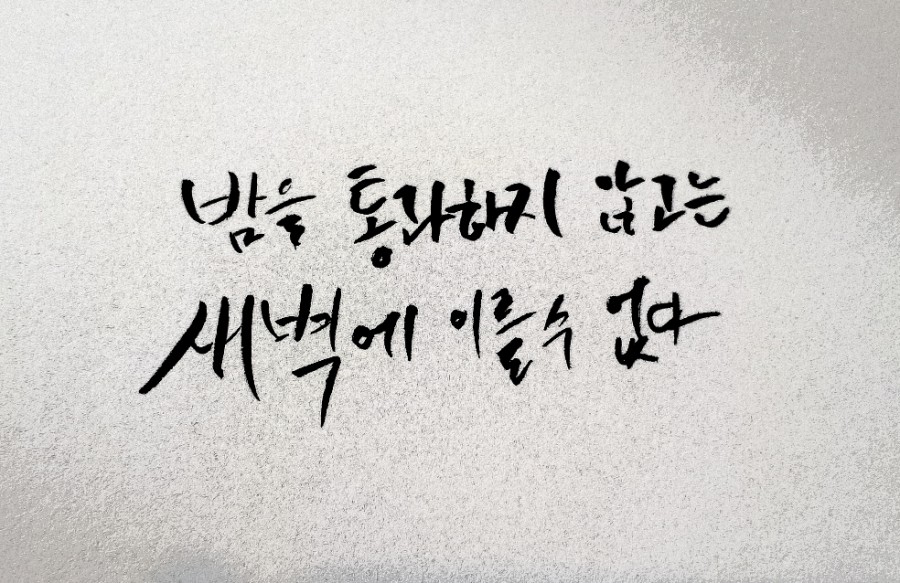 밤을 통과하지 않고는
새벽에 이를수 없다